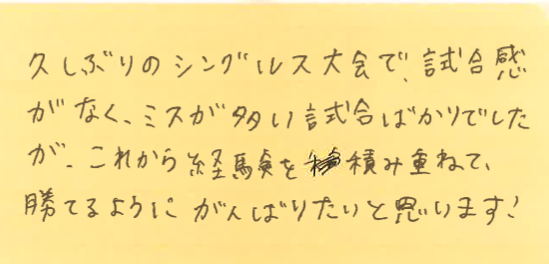 久しぶりのシングルス大会で、試合感
がなく、ミスが多い試合ばかりでした
が、これから経験を積み重ねて、
勝てるように がんばりたいと思います!